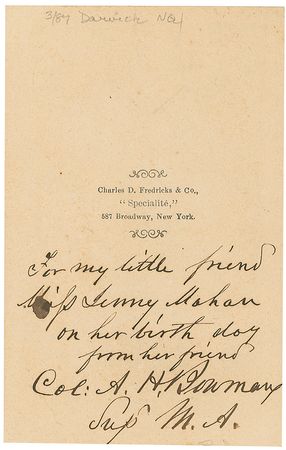 3/87 Darvick NQY
Charles D. Fredricks & Co.,
"Specialité,"
587 Broadway, New York.
For my little friend
Miss Jenny Mahan
on her birth day
from her friend
Col: A. H. Bowman
Sup M. A.